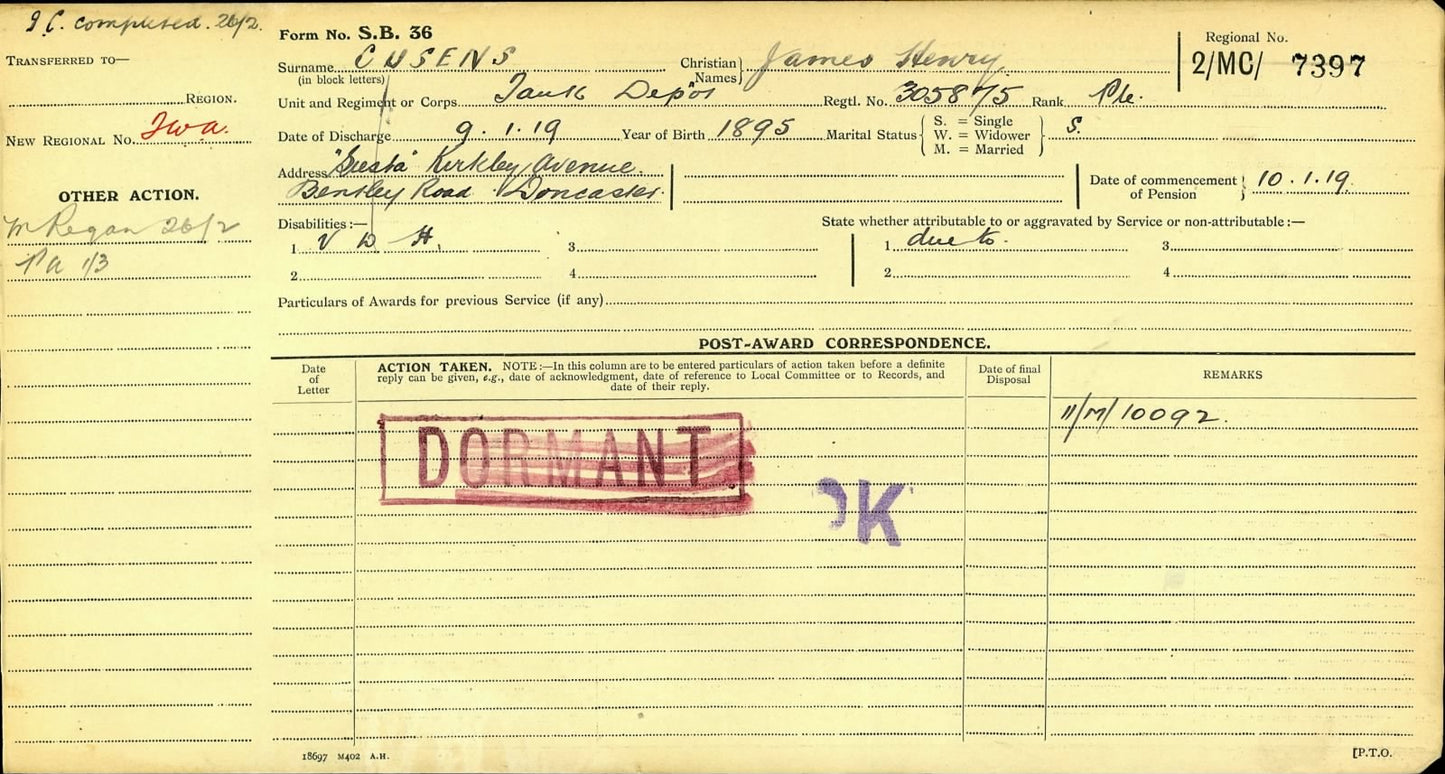 I.C. completed. 26/2.
TRANSFERRED TO—
REGION.
NEW REGIONAL No.
OTHER ACTION.
26/2
PA 1/3
Form No. S.B. 36
Surname CUSENS
(in block letters)
Christian Names} James Henry
Regional No.
2/MC/ 7397
Unit and Regiment or Corps Tank Depot Regtl. No. 305875 Rank Pte.
Date of Discharge 9.1.19 Year of Birth 1895 Marital Status { S. = Single W. = Widower M. = Married } S.
Address "Siesta" Kirkley Avenue.
Bentley Road Doncaster.
Date of commencement of Pension } 10.1.19.
Disabilities:—
State whether attributable to or aggravated by Service or non-attributable:—
1 V D H. 3 1 due to. 3
2 4 2 4
Particulars of Awards for previous Service (if any)
POST-AWARD CORRESPONDENCE.
Date of Letter
ACTION TAKEN. NOTE:—In this column are to be entered particulars of action taken before a definite
reply can be given, e.g., date of acknowledgment, date of reference to Local Committee or to Records, and
date of their reply.
Date of final Disposal
REMARKS
11/M/10092.
DORMANT
OK
18697 M402 A.H.
[P.T.O.